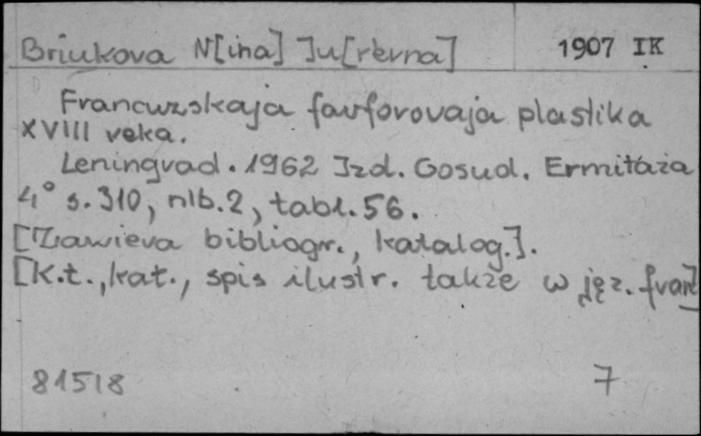 Briukova N[ina] Ju[r'evna] 1907 IK
Francuzskaja farforovaja plastika
XVIII veka.
Leningrad. 1962 Izd. Gosud. Ermitaża
4° s. 310, nlb. 2, tabl. 56.
[Zawiera bibliogr., katalog.].
[K.t., kat., spis ilustr. także w jęz. franc]
81518 7